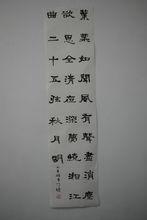 葉葉如聞風有聲盡消塵
俗思全清夜深夢繞湘江
曲二十五弦秋月明